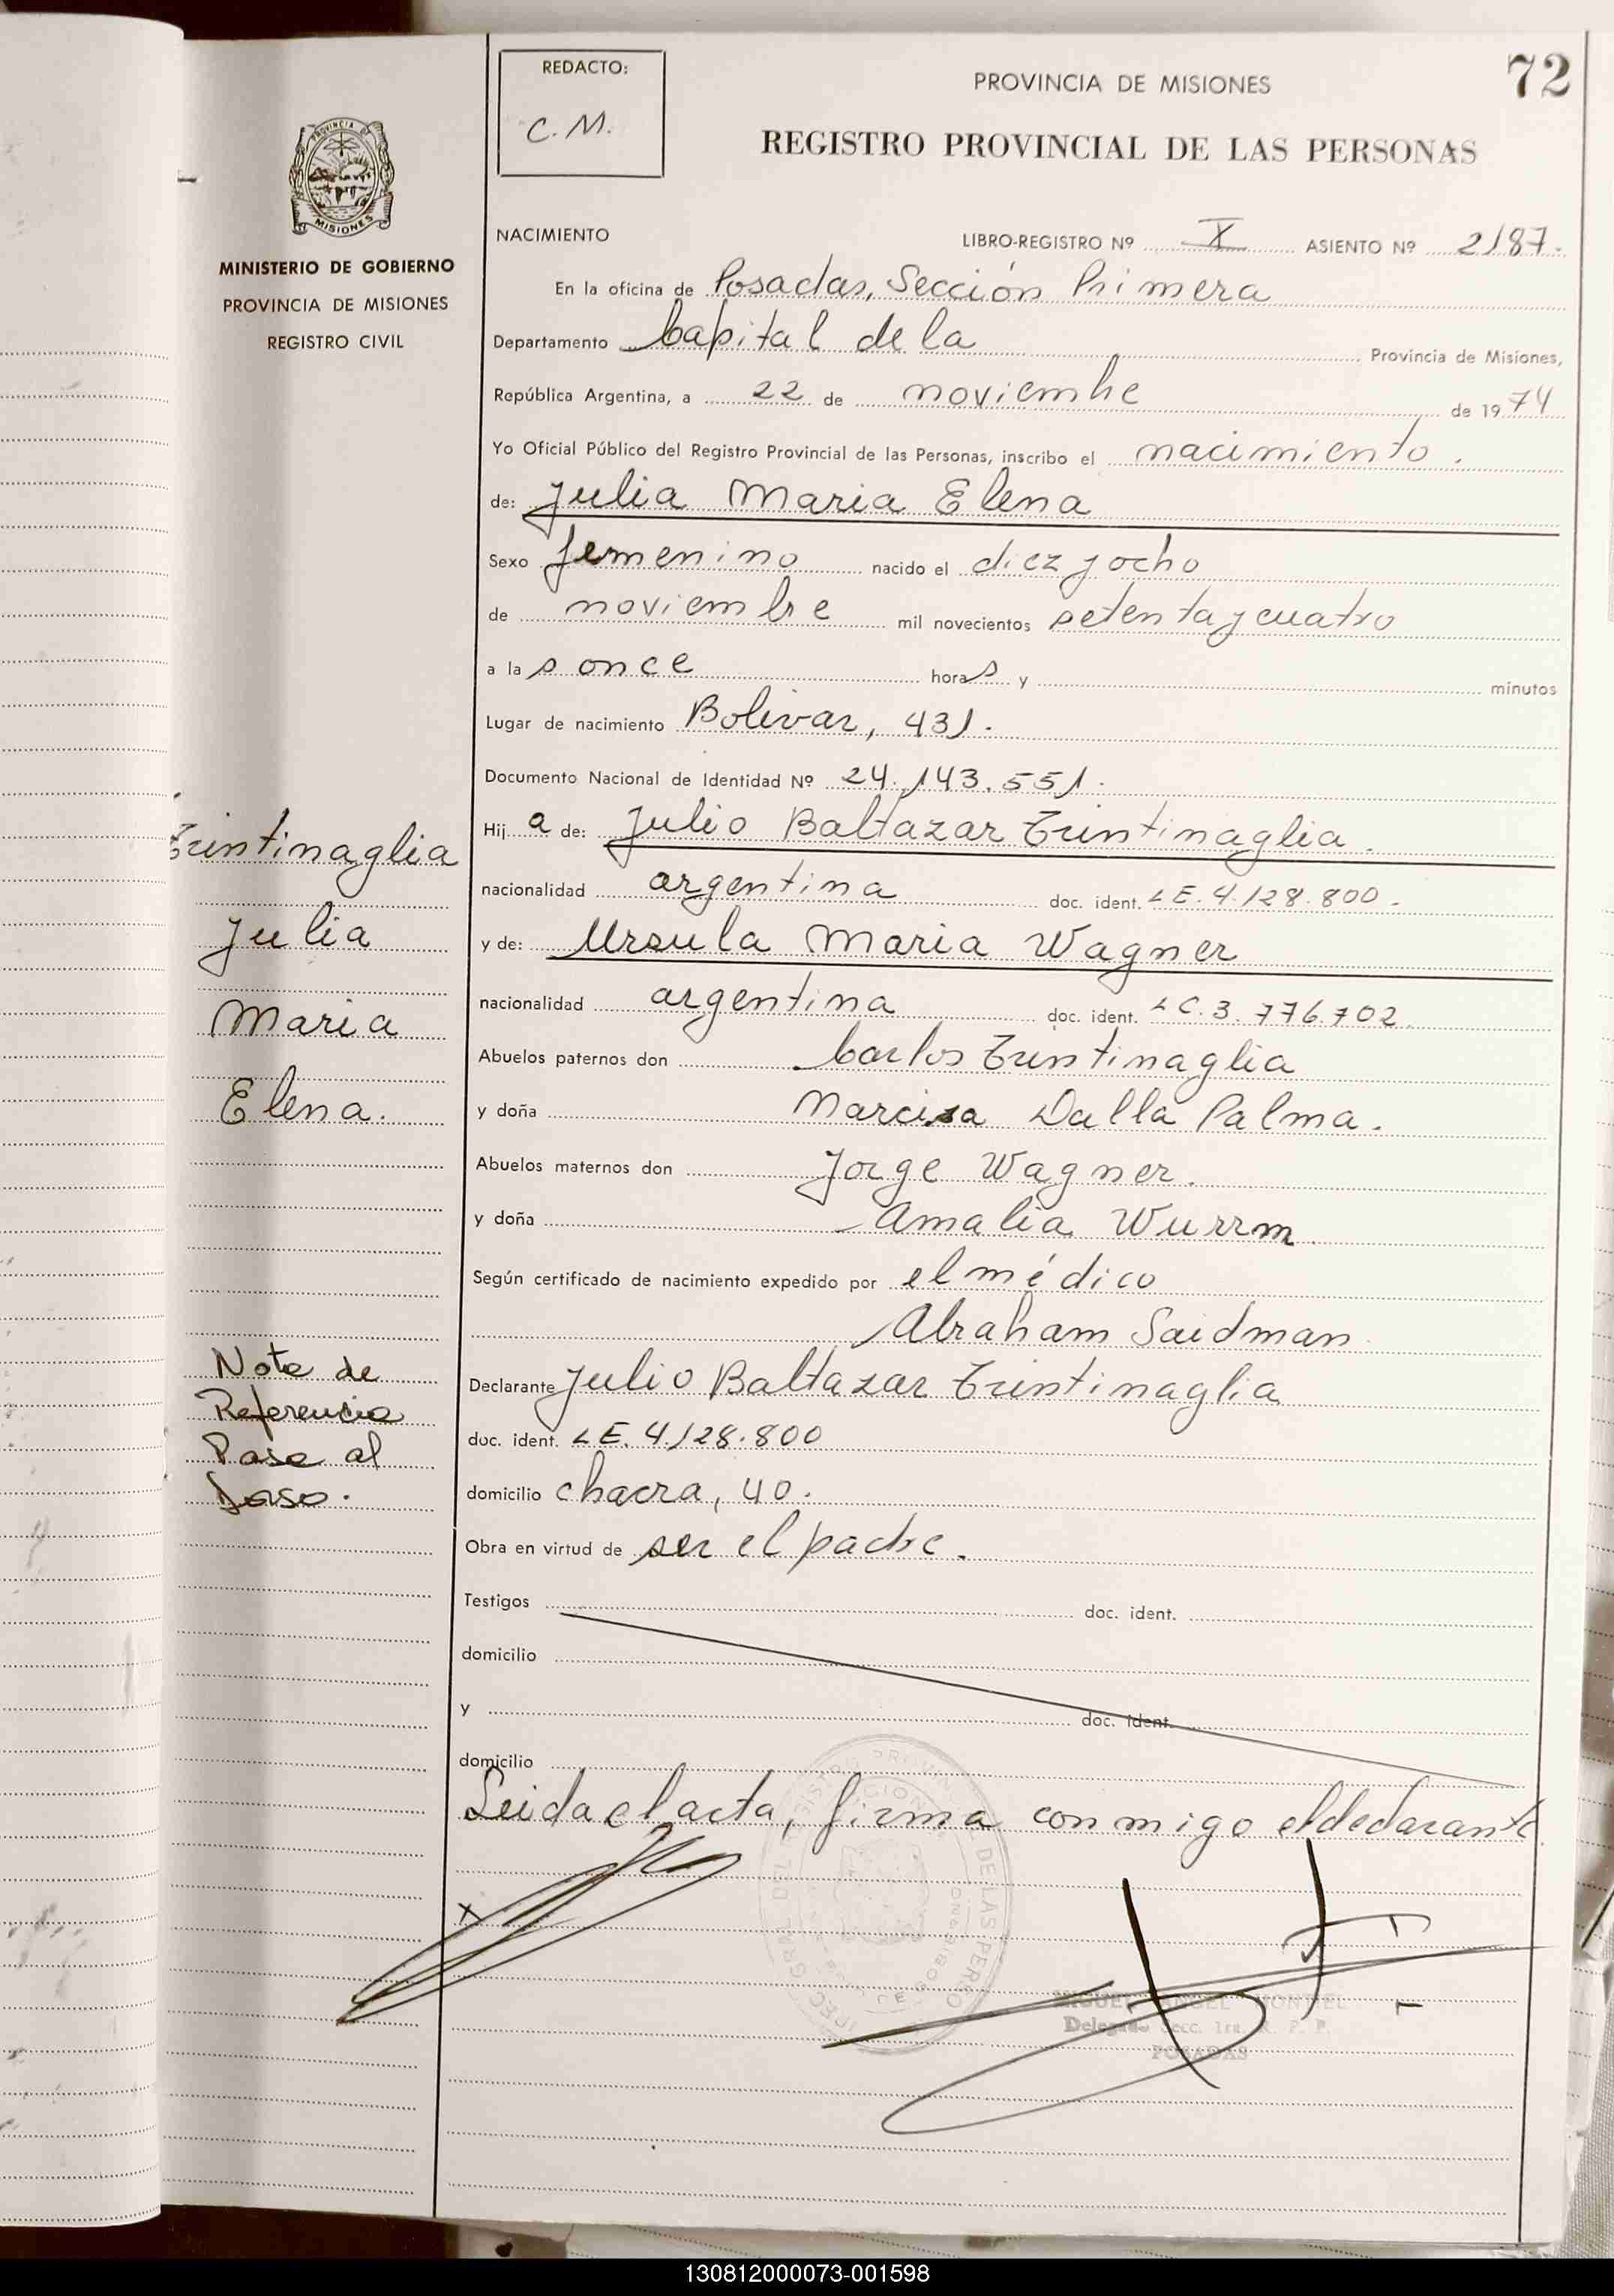 72
REDACTO:
C. M.
PROVINCIA DE MISIONES
REGISTRO PROVINCIAL DE LAS PERSONAS
PROVINCIA DE
MISIONES
MINISTERIO DE GOBIERNO
PROVINCIA DE MISIONES
REGISTRO CIVIL
NACIMIENTO
LIBRO-REGISTRO Nº X ASIENTO Nº 2187.
En la oficina de Posadas, Sección Primera
Departamento Capital de la Provincia de Misiones,
República Argentina, a 22 de noviembre de 1974
Yo Oficial Público del Registro Provincial de las Personas, inscribo el nacimiento.
de: Julia Maria Elena
Sexo femenino nacido el diez y ocho
de noviembre mil novecientos setenta y cuatro
a las once horas y minutos
Lugar de nacimiento Bolivar, 431.
Documento Nacional de Identidad Nº 24.143.551.
Hija de: Julio Baltazar Trintinaglia.
nacionalidad argentina doc. ident. LE. 4.128.800.
y de: Ursula Maria Wagner
nacionalidad argentina doc. ident. LC. 3.776.702
Abuelos paternos don Carlos Trintinaglia
y doña Narcisa Dalla Palma.
Abuelos maternos don Jorge Wagner.
y doña Amalia Wurrm
Según certificado de nacimiento expedido por el médico
Abraham Saidman
Declarante Julio Baltazar Trintinaglia
doc. ident. LE. 4.128.800
domicilio chacra, 40.
Obra en virtud de ser el padre.
Testigos doc. ident.
domicilio
y doc. ident.
domicilio
Leida el acta, firma conmigo el declarante
Trintinaglia
Julia
Maria
Elena.
Nota de
Referencia
Pase al
Dorso.
x
MIGUEL ANGEL MONTIEL
Delegado Secc. 1ra. R. P. P.
POSADAS
130812000073-001598